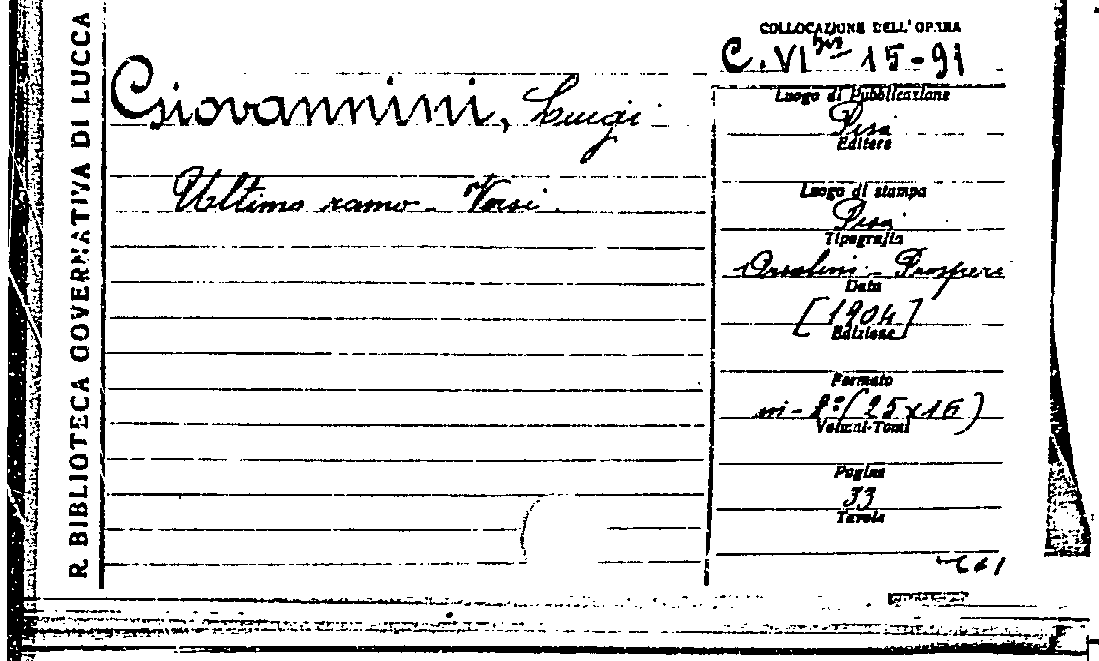 R. BIBLIOTECA GOVERNATIVA DI LUCCA
COLLOCAZIONE DELL'OPERA
C. VI bis 15-91
Giovannini, Luigi
Ultimo ramo - Versi.
Luogo di Pubblicazione
Pisa
Editore
Luogo di stampa
Pisa
Tipografia
Orsolini - Prosperi
Data
[1904]
Edizione
Formato
in-8º (25x16)
Volumi-Tomi
Pagine
33
Tavole